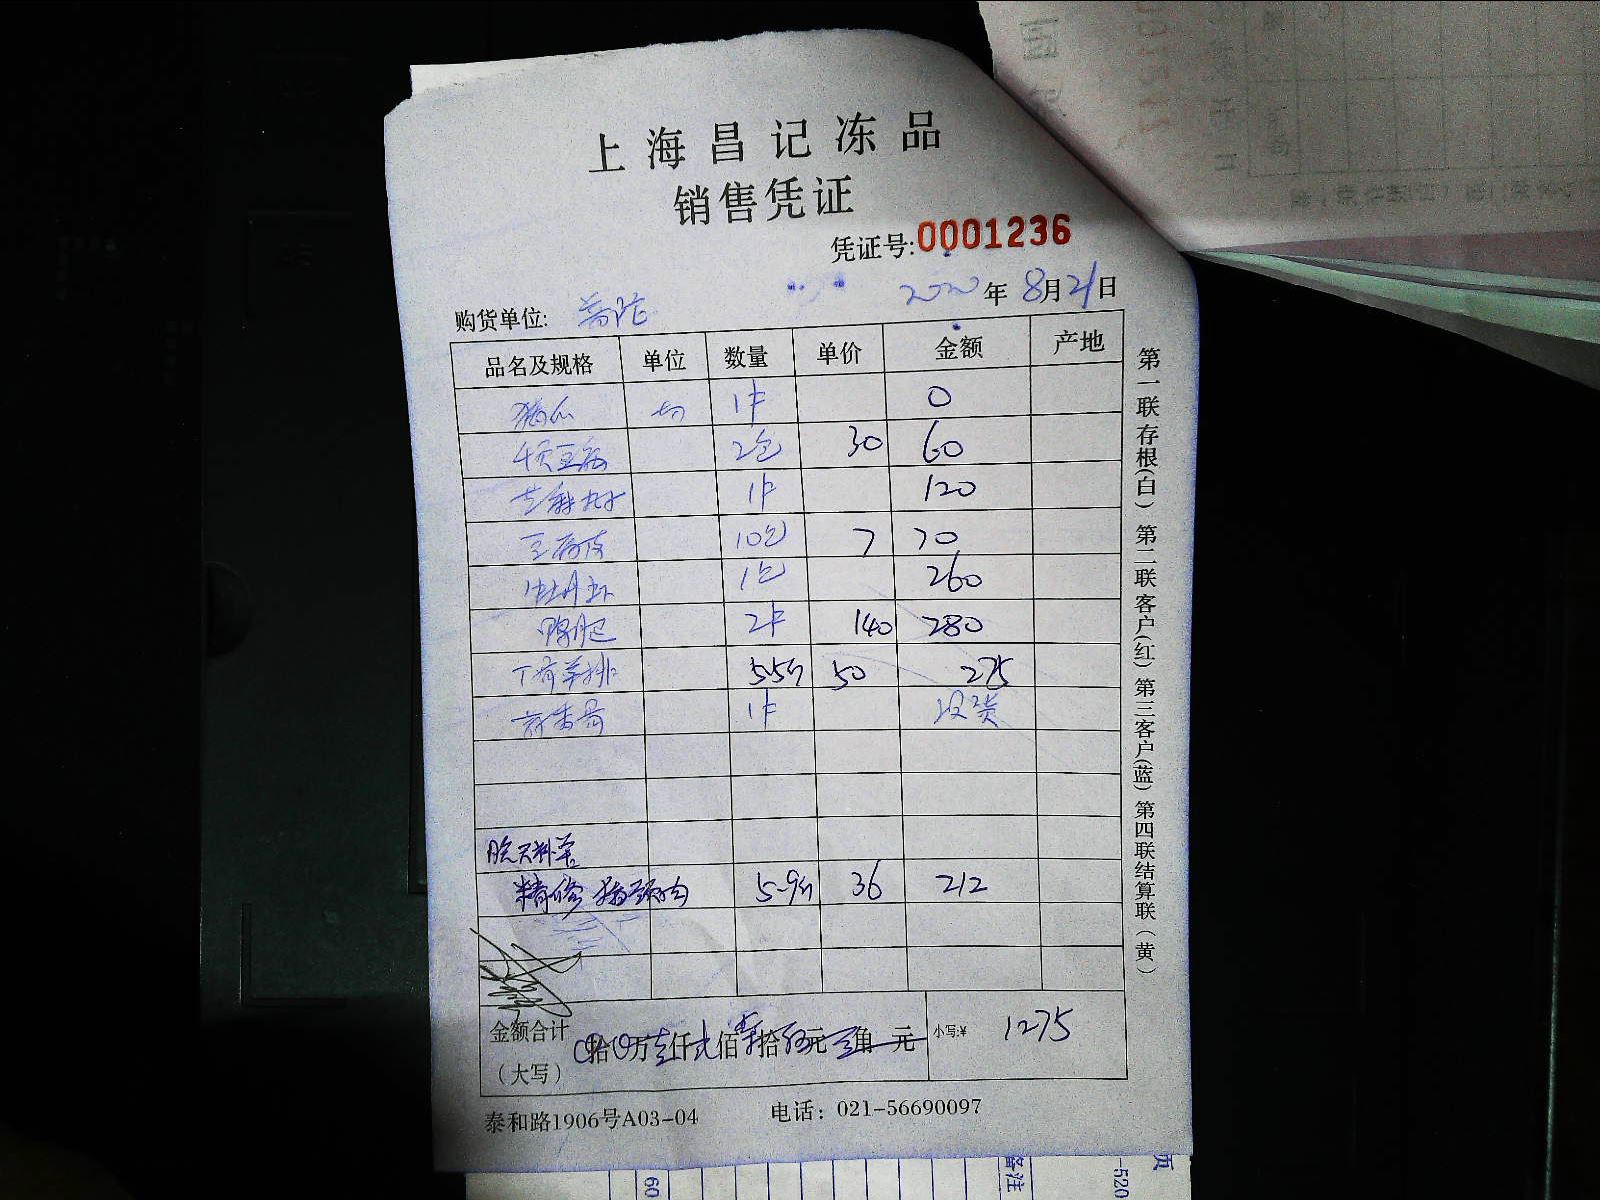 上海昌记冻品
销售凭证
凭证号:0001236
2020年8月21日
购货单位: 普陀
品名及规格 单位 数量 单价 金额 产地
1件 0
千页豆腐 2包 30 60
芝麻丸子 1件 120
豆腐皮 10包 7 70
牡丹虾 1包 260
鸭肫 2件 140 280
丁骨羊排 5.5斤 50 275
1件 没货
精修猪颈肉 5.9斤 36 212
金额合计 0拾0万壹仟贰佰柒拾伍元 角 元 小写:¥ 1275
（大写）
泰和路1906号A03-04 电话：021-56690097
第一联存根(白) 第二联客户(红) 第三客户(蓝) 第四联结算联(黄)
60
备注
-520
页